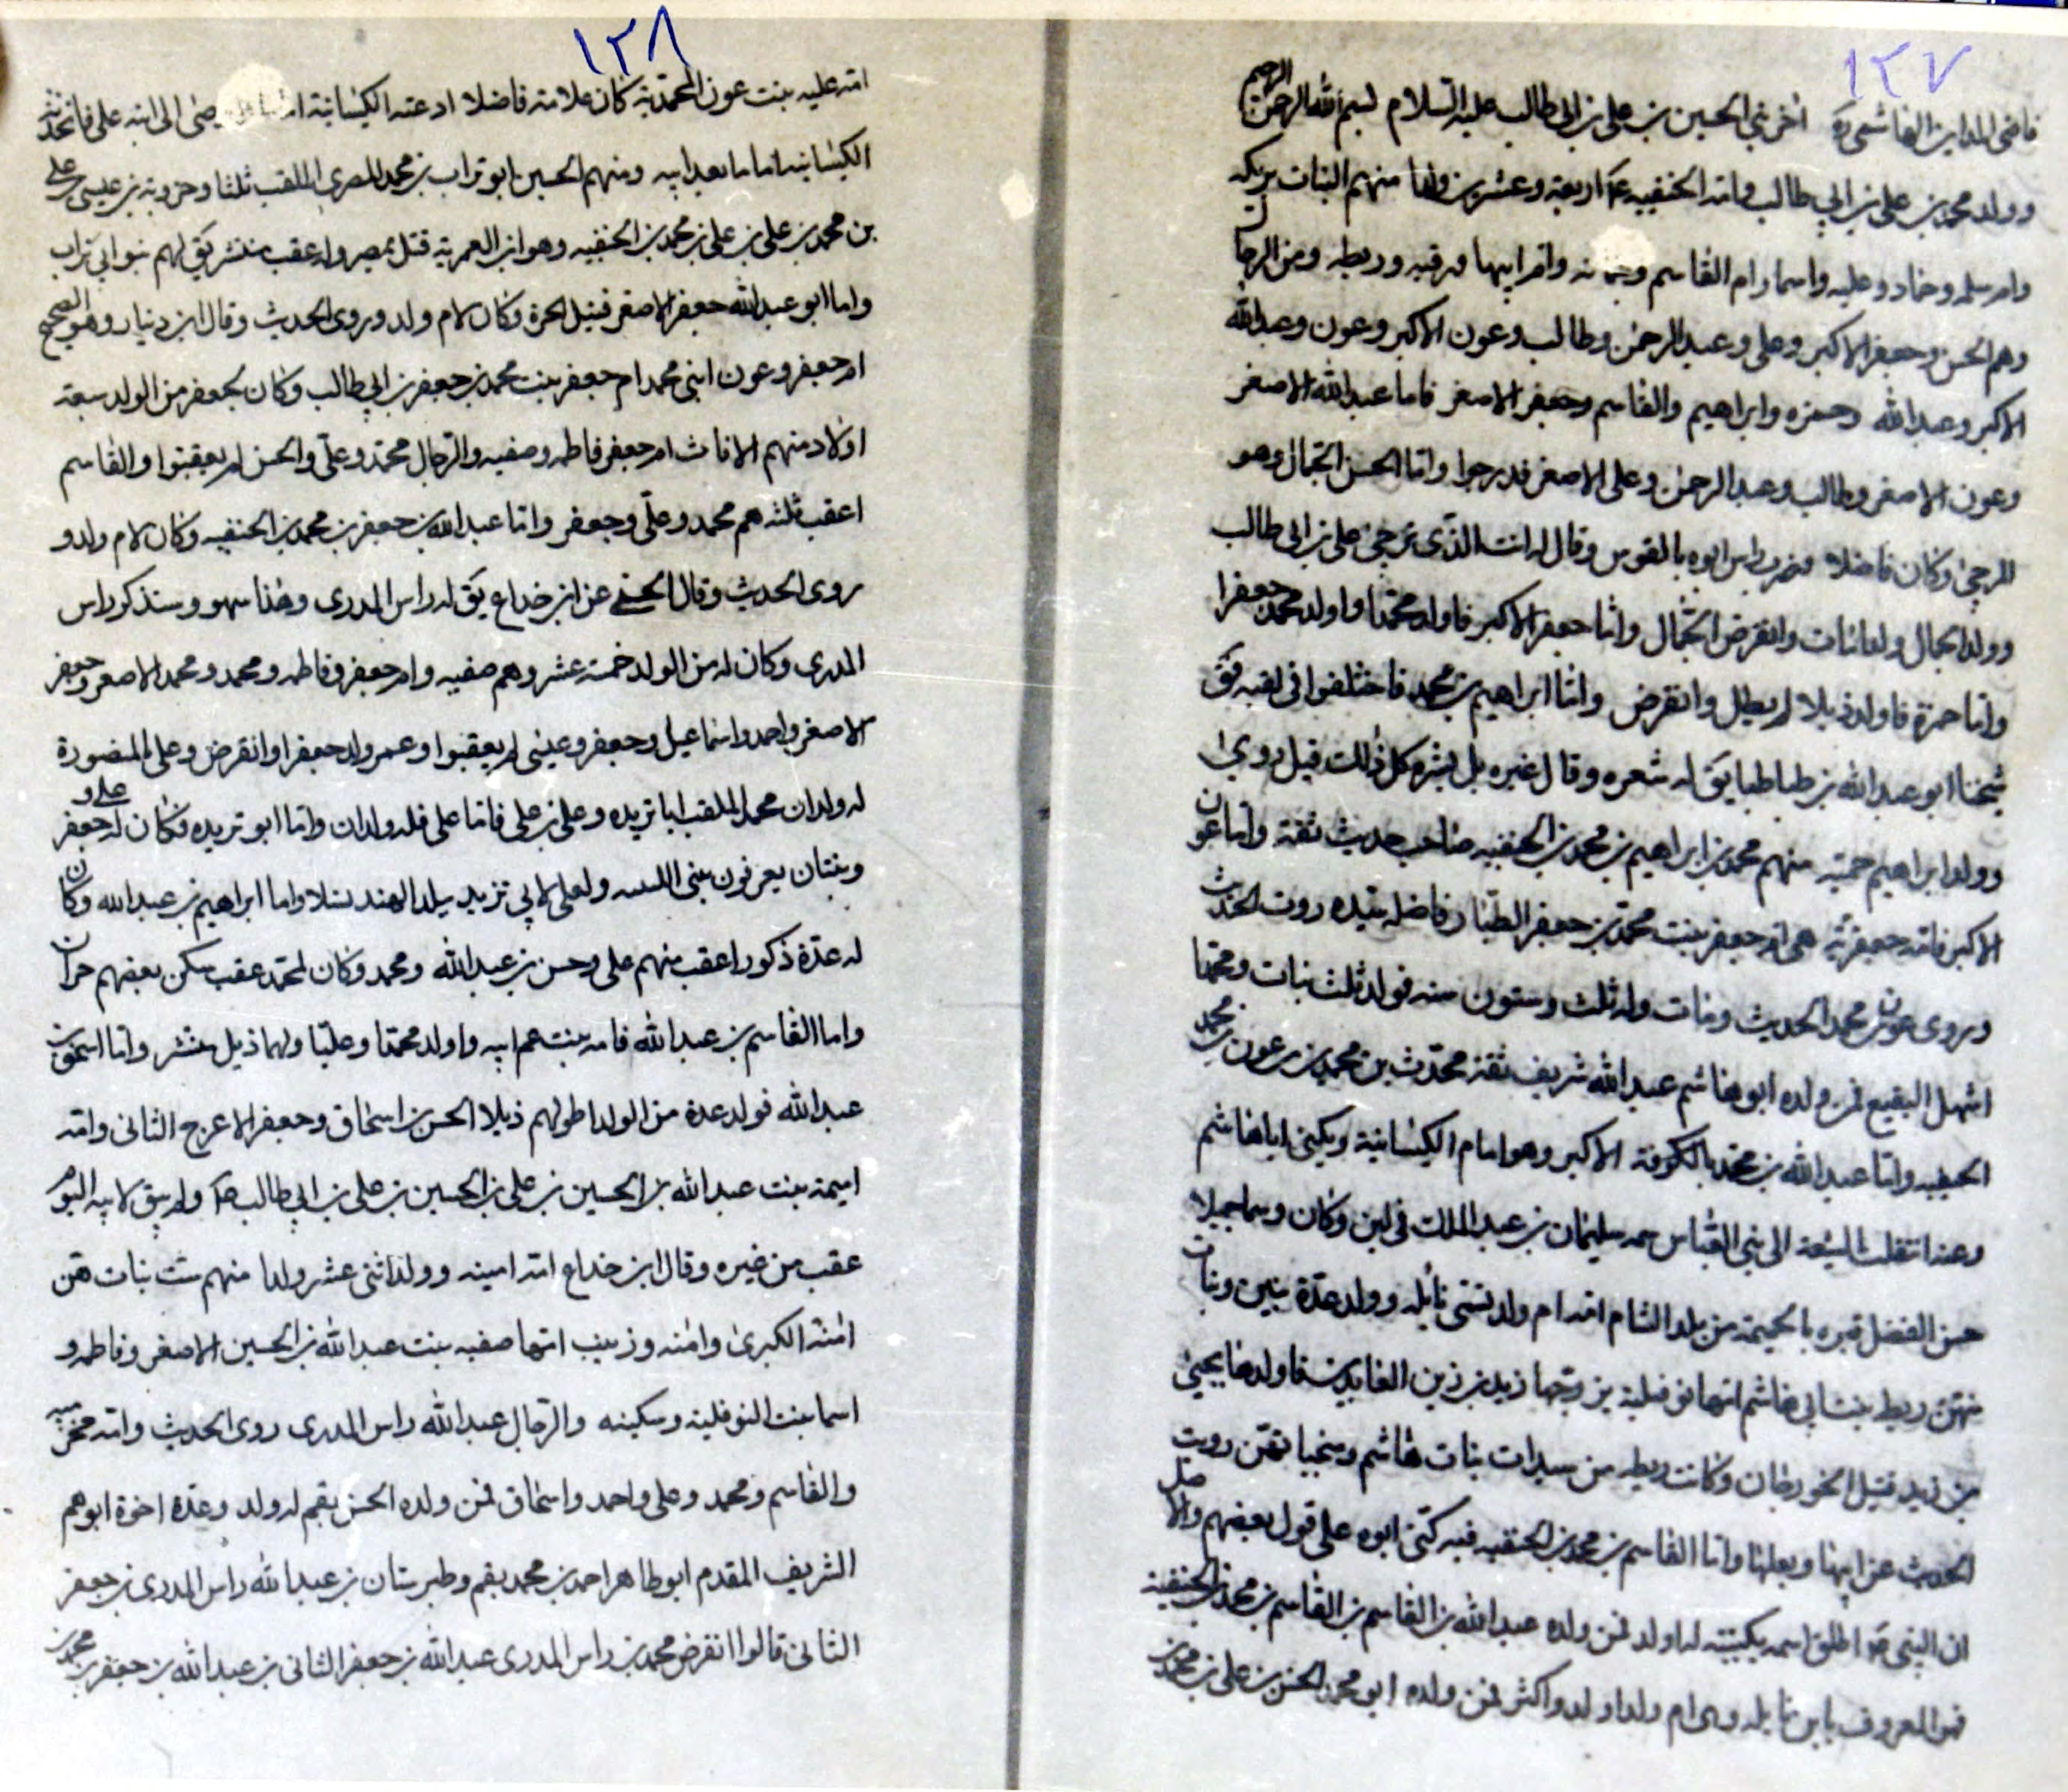 ١٢٧
قاضی المداین الهاشمی ره اخر بنی الحسین بن علی بن ابی طالب علیه السلام بسم الله الرحمن الرحیم
وولد محمد بن علی بن ابی طالب وامه الحنفیه اربعة وعشرین ولدا منهم البنات بریکه
وام سلمه وحماده وعلیه واسما وام القاسم وجمانه وام ابیها ورقیه وریطه ومن الرجال
وهم الحسن وجعفر الاکبر وعلی وعبد الرحمن وطالب وعون الاکبر وعون وعبدالله
الاکبر وعبدالله وحمزه وابراهیم والقاسم وجعفر الاصغر فاما عبدالله الاصغر
وعون الاصغر وطالب وعبد الرحمن وعلی الاصغر فدرجوا واما الحسن الجمال وهو
المرجئ وکان فاضلا فضرب راس ابوه بالقوس وقال له انت الذی ترجئ علی بن ابی طالب
وولد الجمال ولدا مات وانقرض الجمال واما جعفر الاکبر فاولد محمدا واولد محمد جعفرا
واما حمزة فاولد ذیلا لم یطل وانقرض واما ابراهیم بن محمد فاختلفوا فی لقبه فق
شیخنا ابو عبدالله بن طباطبا یق له شعره وقال غیره بل بشره کل ذلک قیل روی
وولد ابراهیم خمسة منهم محمد بن ابراهیم بن محمد بن الحنفیه صاحب حدیث ثقة واما عون
الاکبر فامه جعفریة هی ام جعفر بنت محمد بن جعفر الطیار فاضله سیده روت الحدیث
وروی عون بن محمد الحدیث ومات وله ثلث وستون سنه فولد ثلث بنات ومحمدا
اشهل البقیع فمن ولده ابو هاشم عبدالله شریف ثقة محدث بن محمد بن عون بن محمد
الحنفیه واما عبدالله بن محمد بالکوفة الاکبر وهو امام الکیسانیة ویکنی اباهاشم
وعنه انتقلت الشیعة الی بنی العباس سمه سلیمان بن عبد الملک فی لبن وکان وسما جمیلا
حسن الفضل قبره بالحمیمة من بلد الشام امه ام ولد تسمی نائله وولد عدة بنین وبنات
منهن ریطه بنت ابی هاشم امها نوفلیة تزوجها زید بن زین العابدین فاولدها یحیی
بن زید قتیل الجوزجان وکانت ریطه من سیدات بنات هاشم ومنجباتهن روت
الحدیث عن ابیها وبعلها واما القاسم بن محمد بن الحنفیه فبه کنی ابوه علی قول بعضهم والاصل
ان النبی اطلق اسمه بکنیته له اولد فمن ولده عبدالله بن القاسم بن القاسم بن محمد بن الحنفیة
المعروف بابن نایله وهی ام ولد اولد واکثر فمن ولده ابو محمد الحسن بن علی بن محمد بن
١٢٨
امه علیه بنت عون المحمدیة کان علامة فاضلا ادعته الکیسانیة اوصی الی ابنه علی فاتخذته
الکیسانیه اماما بعد ابیه ومنهم الحسین ابو تراب بن محمد المصری الملقب ثلثا وخروبة بن عیسی بن علی
بن محمد بن علی بن علی بن محمد بن الحنفیه وهو ابن العمریة قتل بمصر وله عقب منتشر یق لهم بنو ابی تراب
واما ابو عبدالله جعفر الاصغر قتیل الحرة وکان لام ولد وروی الحدیث وقال ابن دینار وهو الصحیح
ام جعفر وعون ابنی محمد ام جعفر بنت محمد بن جعفر بن ابی طالب وکان لجعفر من الولد سبعة
اولاد منهم الاناث ام جعفر فاطمه وصفیه والرجال محمد وعلی والحسن لم یعقبوا والقاسم
اعقب ثلثه هم محمد وعلی وجعفر واما عبدالله بن جعفر بن محمد بن الحنفیه وکان لام ولد و
روی الحدیث وقال الحسنی عن ابن خداع یق له راس المدری وهذا سهو وسنذکر راس
المدری وکان له من الولد خمسة عشر وهم صفیه وام جعفر وفاطمه ومحمد ومحمد الاصغر وجعفر
الاصغر واحمد واسماعیل وجعفر وعیسی لم یعقبوا وعمر ولد جعفرا وانقرض وعلی المنصورة
له ولدان محمد الملقب اباتریده وعلی بن علی فاما علی فله ولدان واما ابو تریده فکان له جعفر علی و
وبنتان یعرفون ببنی ولعلی لابی تزید ببلد الهند نسلا واما ابراهیم بن عبدالله وکان
له عدة ذکور اعقب منهم علی وحسن بن عبدالله ومحمد وکان لمحمد عقب سکن بعضهم حران
واما القاسم بن عبدالله فامه بنت عم ابیه واولد محمدا وعلیا ولهما ذیل منتشر واما اسحق بن
عبدالله فولد عدة من الولد اطولهم ذیلا الحسن بن اسحاق وجعفر الاعرج الثانی وامه
امیمه بنت عبدالله بن الحسین بن علی بن الحسین بن علی بن ابی طالب ولم یبق لابیه الیوم
عقب من غیره وقال ابن خداع امه امینه وولد اثنی عشر ولدا منهم ست بنات هن
امنة الکبری وامنه وزینب امها صفیه بنت عبدالله بن الحسین الاصغر وفاطمه و
اسما بنت النوفلیة وسکینه والرجال عبدالله راس المدری روی الحدیث وامه مخزومیه
والقاسم ومحمد وعلی واحمد واسحاق فمن ولده الحسن بقم له ولد وعدة اخوة ابوهم
الشریف المقدم ابو طاهر احمد بن محمد بقم وطبرستان بن عبدالله راس المدری بن جعفر
الثانی قالوا انقرض محمد بن راس المدری عبدالله بن جعفر الثانی بن عبدالله بن جعفر بن محمد بن